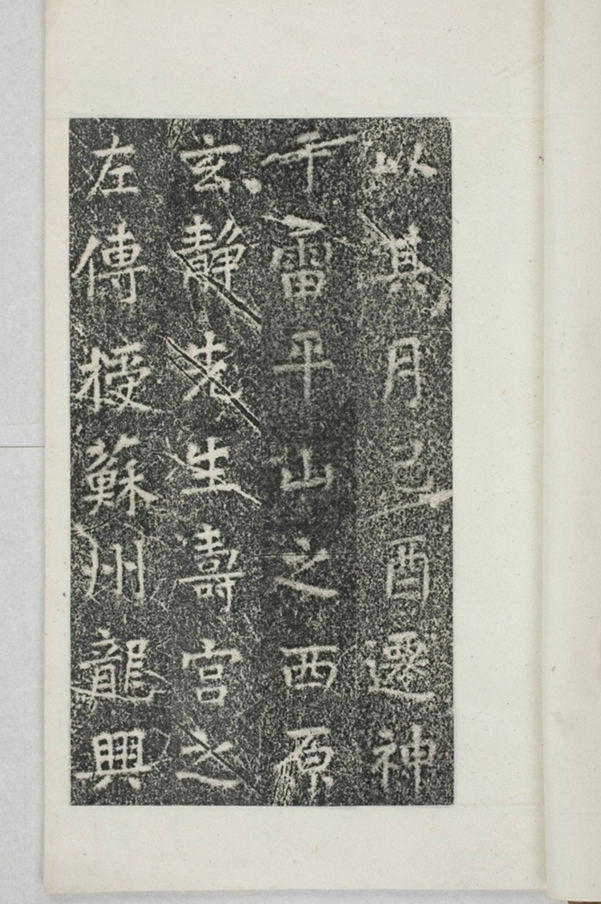 以其月己酉遷神
于雷平山之西原
玄靜先生壽宮之
左傳授蘇州龍興